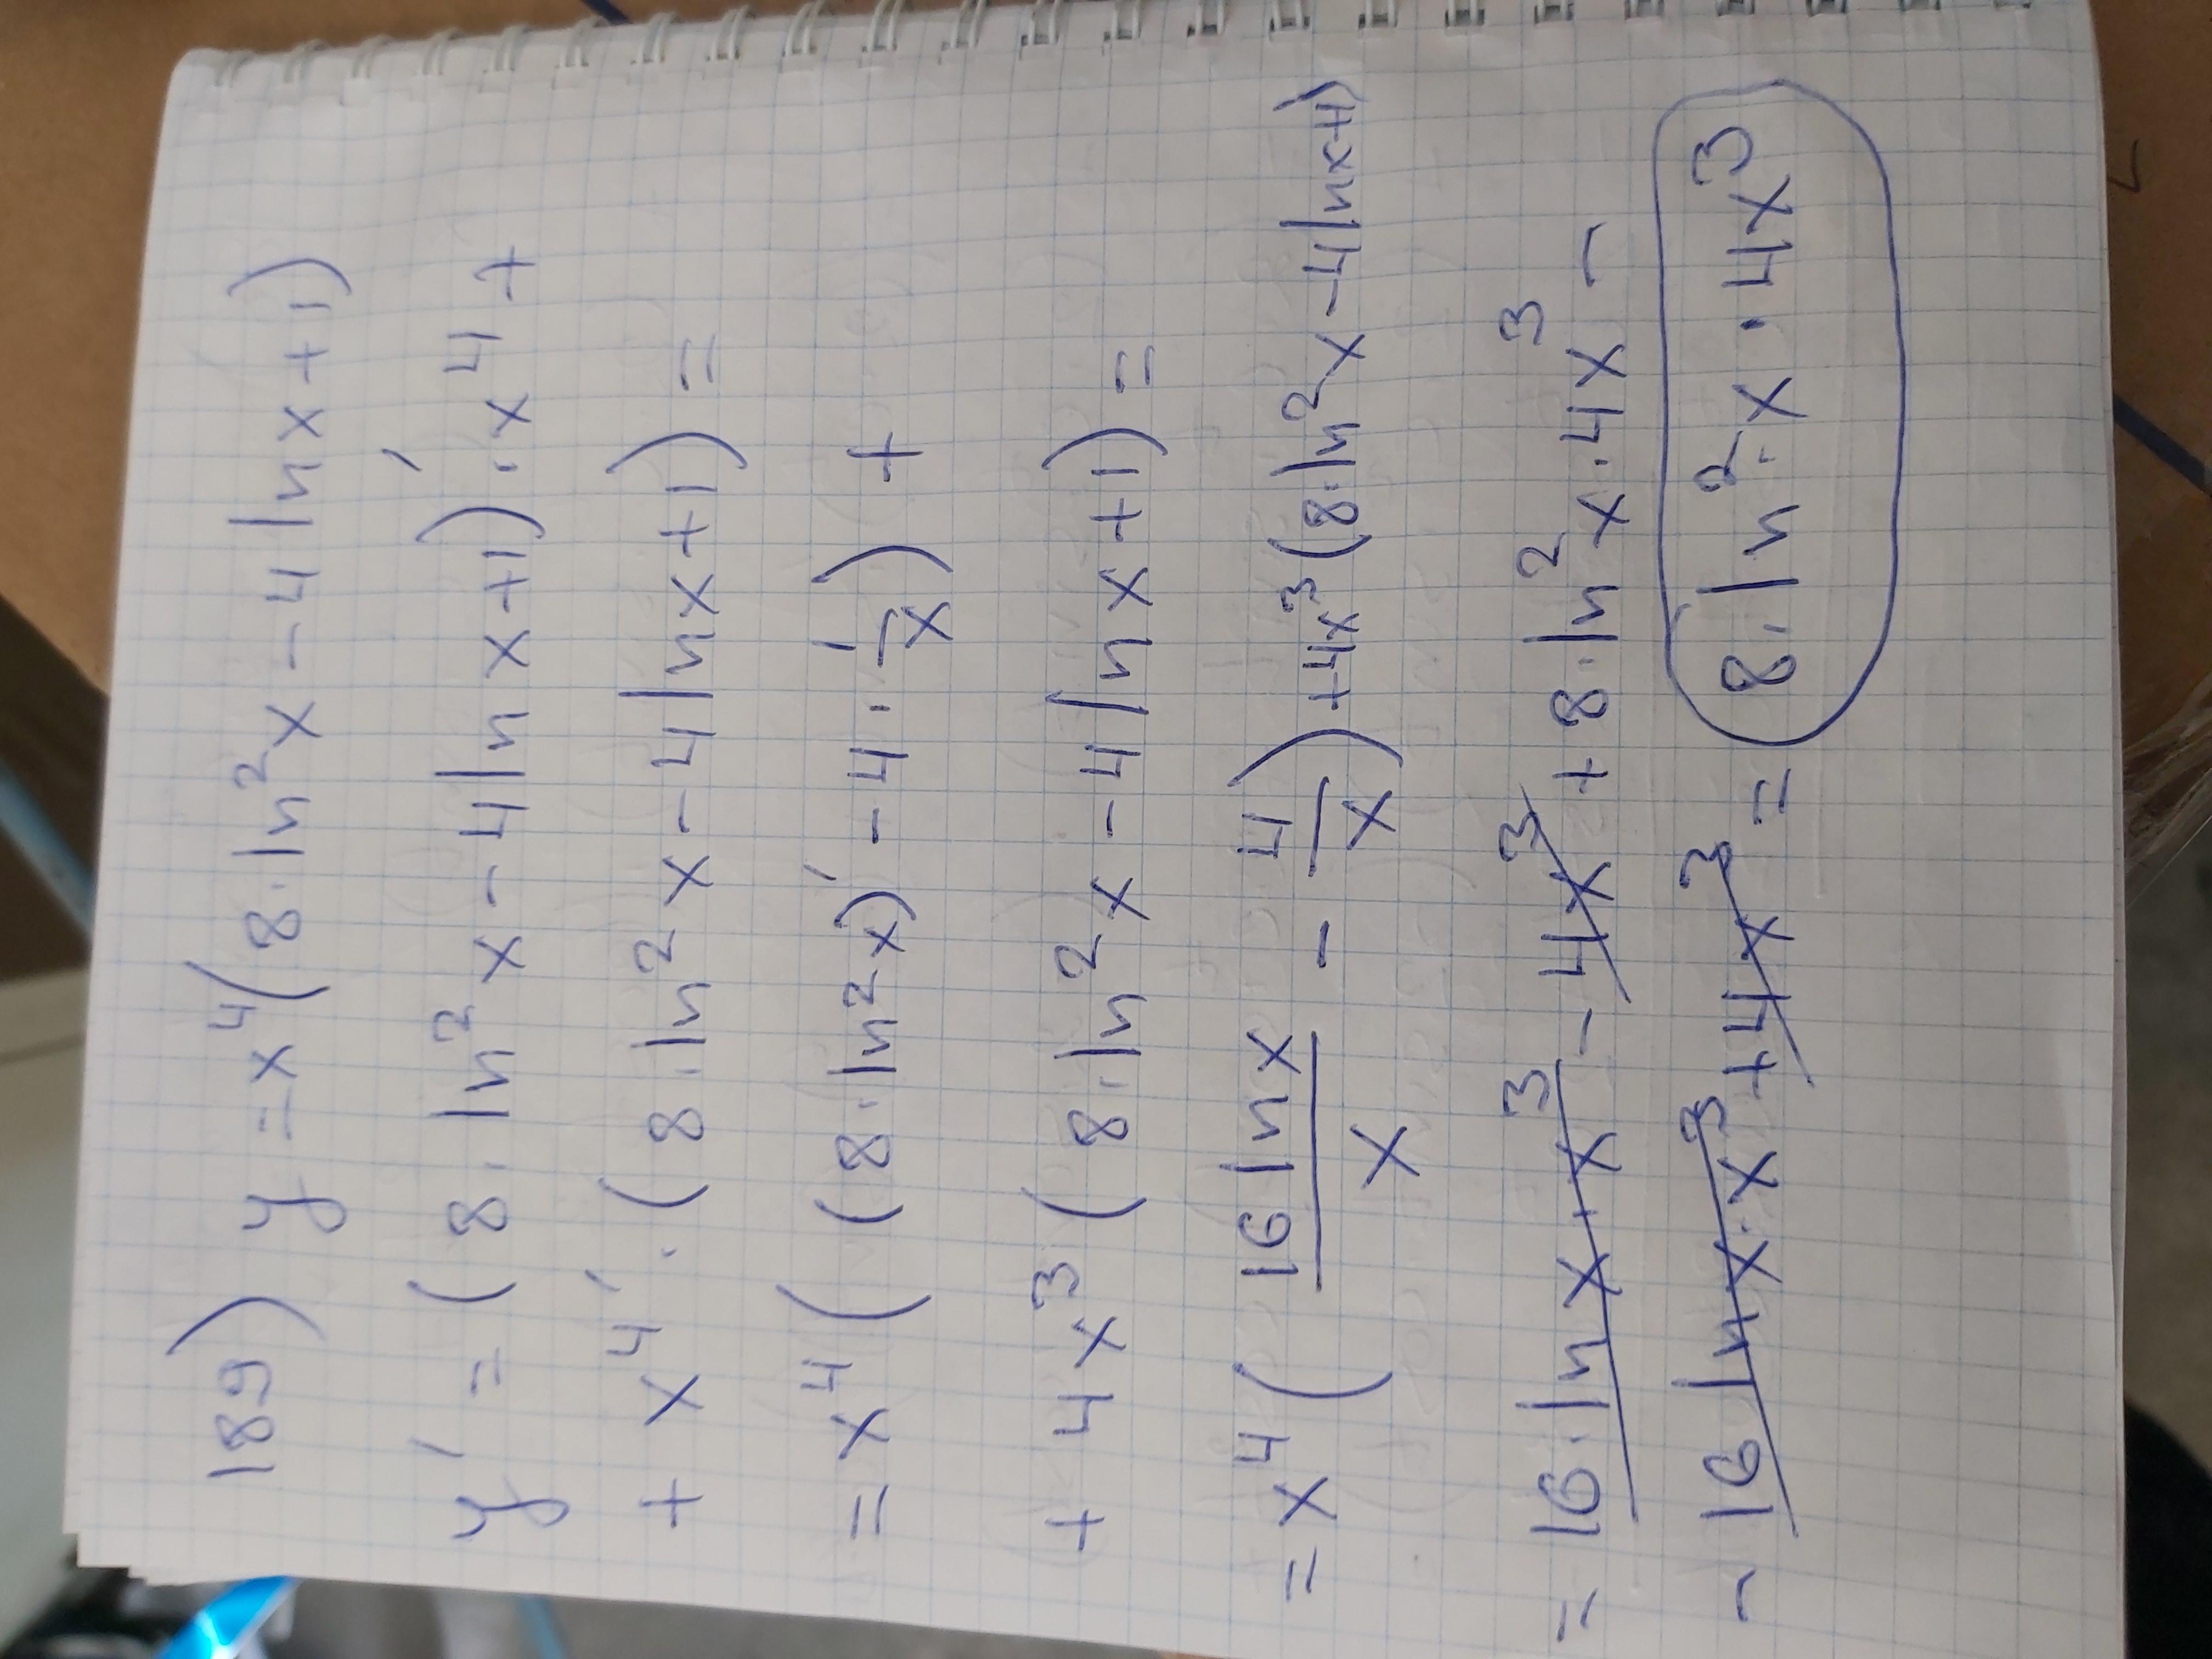 189) y = x⁴(8·ln²x – 4 ln x + 1)
y' = (8·ln²x – 4 ln x + 1)'·x⁴ +
+ x⁴'·(8·ln²x – 4 ln x + 1) =
= x⁴((8·ln²x)' – 4·1/x) +
+ 4x³(8·ln²x – 4 ln x + 1) =
= x⁴(16 ln x/x – 4/x) + 4x³(8·ln²x – 4 ln x + 1)
= 16·ln x·x³ – 4x³ + 8·ln²x·4x³ –
– 16 ln x·x³ + 4x³ = 8·ln²·x·4x³